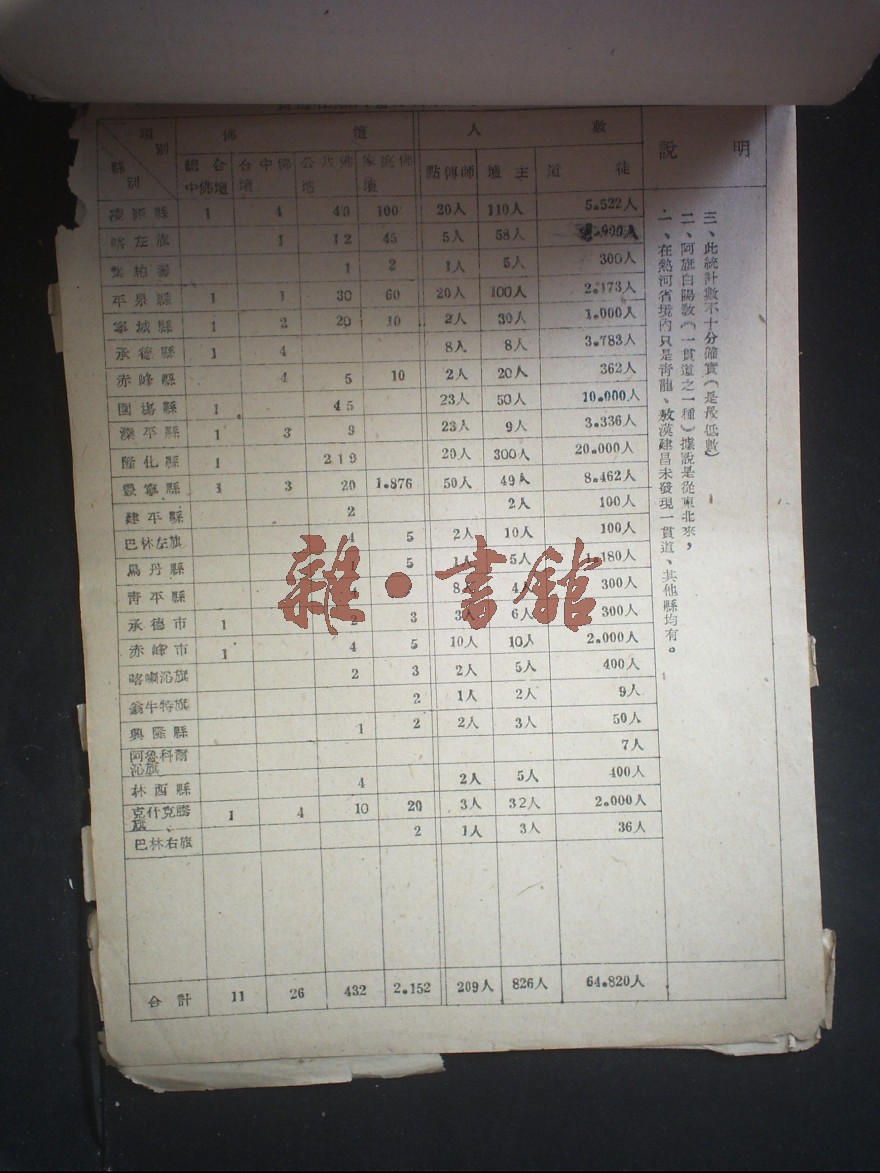 項別 佛壇 人數 說明
縣別 總合中佛壇 台中佛壇 公共佛 家庭佛壇 點傳師 壇主 道徒
凌源縣 1 4 40 100 20人 110人 5.522人
喀左旗 1 12 45 5人 58人
1 2 1人 5人 300人
平泉縣 1 1 30 60 20人 100人 2.173人
寧城縣 1 2 20 10 2人 30人 1.000人
承德縣 1 4 8人 8人 3.783人
赤峰縣 4 5 10 2人 20人 362人
圍場縣 1 45 23人 50人 10.000人
灤平縣 1 3 9 23人 9人 3.336人
隆化縣 1 219 20人 300人 20.000人
豐寧縣 1 3 20 1.876 50人 49人 8.462人
建平縣 2 2人 100人
巴林左旗 4 5 2人 10人 100人
烏丹縣 5 1人 5人 180人
青平縣 4 8人 4人 300人
承德市 1 2 3 3人 6人 300人
赤峰市 1 4 5 10人 10人 2.000人
喀喇沁旗 2 3 2人 5人 400人
翁牛特旗 2 1人 2人 9人
興隆縣 1 2 2人 3人 50人
阿魯科爾沁旗 7人
林西縣 4 2人 5人 400人
克什克騰旗 1 4 10 20 3人 32人 2.000人
巴林右旗 2 1人 3人 36人
合計 11 26 432 2.152 209人 826人 64.820人
一、在熱河省境內只是青龍、敖漢建昌未發現一貫道、其他縣均有。
二、阿旗白陽教(一貫道之一種)據說是從東北來,
三、此統計數不十分確實(是最低數)
雜·書館